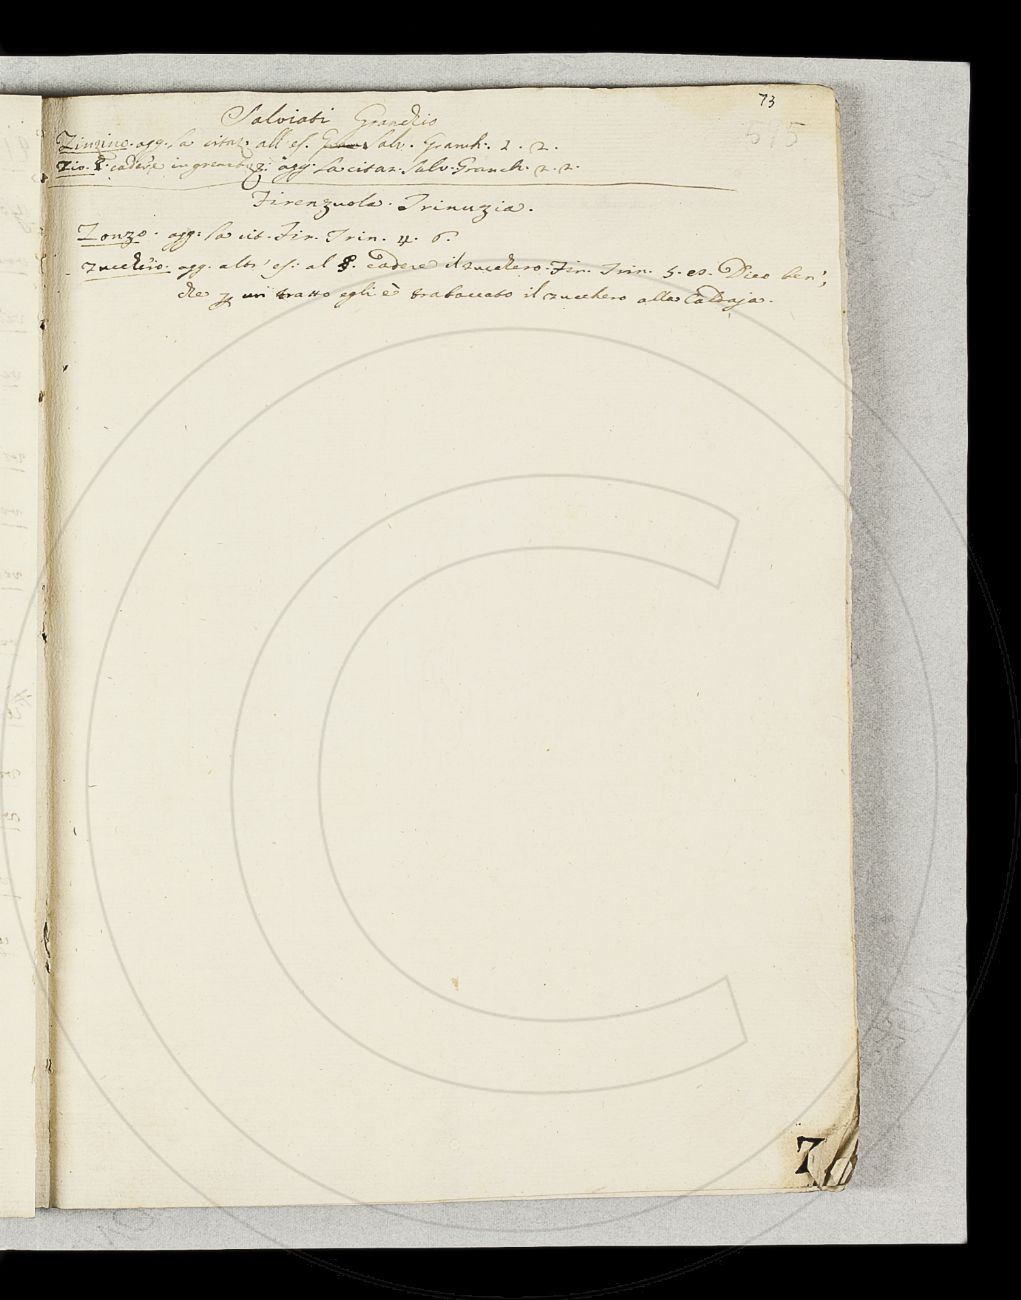 73
515
Salviati Granchio
Zinnino. agg. la citaz. all' es. Salv. Granch. 2. 2.
Zio. §. cadere in grembo agg. la citaz. Salv. Granch. 2. 2.
Firenzuola. Trinuzia.
Zonzo. agg: la cit. Fir. Trin. 4. 6.
Zucchero. agg. altr' es: al §. Cadere il zucchero. Fir. Trin. 5. es. Dico ben,
che un tratto egli è traboccato il zucchero alla Caldaja.
Z